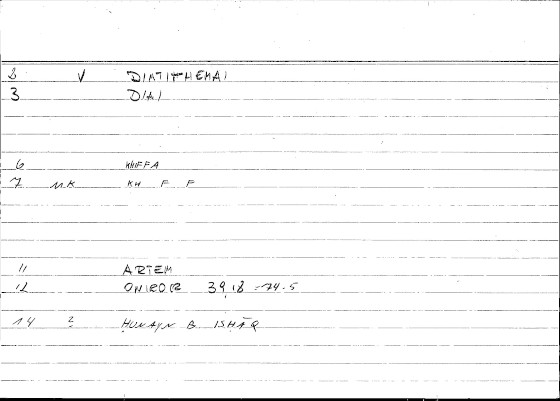 2 V DIATITHEMAI
3 DIAI
6 KHIFFA
7 M.K KH F F
11 ARTEM
12 ONIROCR 39,18 = 74.5
14 ? HUNAYN B ISHĀQ